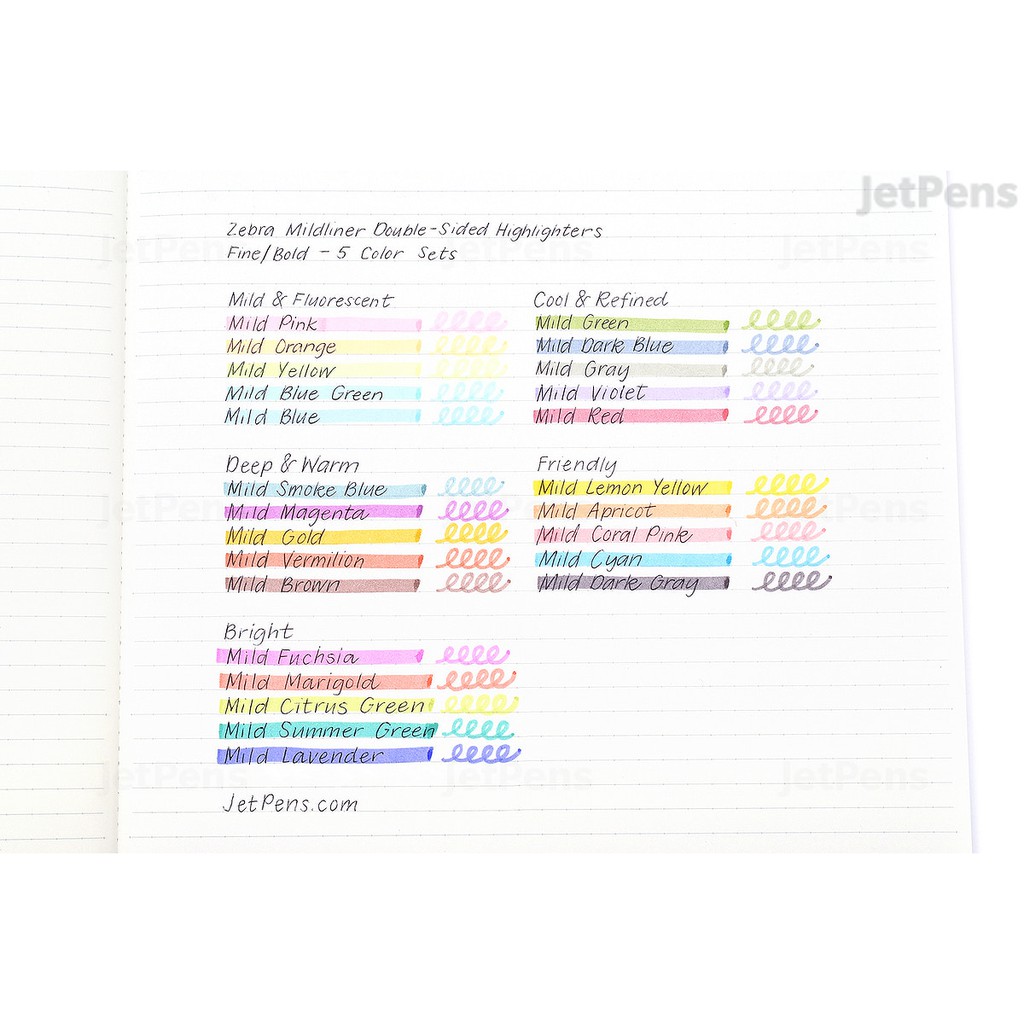 JetPens
Zebra Mildliner Double-Sided Highlighters
Fine/Bold - 5 Color Sets
Mild & Fluorescent
Mild Pink
Mild Orange
Mild Yellow
Mild Blue Green
Mild Blue
Cool & Refined
Mild Green
Mild Dark Blue
Mild Gray
Mild Violet
Mild Red
Deep & Warm
Mild Smoke Blue
Mild Magenta
Mild Gold
Mild Vermilion
Mild Brown
Friendly
Mild Lemon Yellow
Mild Apricot
Mild Coral Pink
Mild Cyan
Mild Dark Gray
Bright
Mild Fuchsia
Mild Marigold
Mild Citrus Green
Mild Summer Green
Mild Lavender
JetPens.com